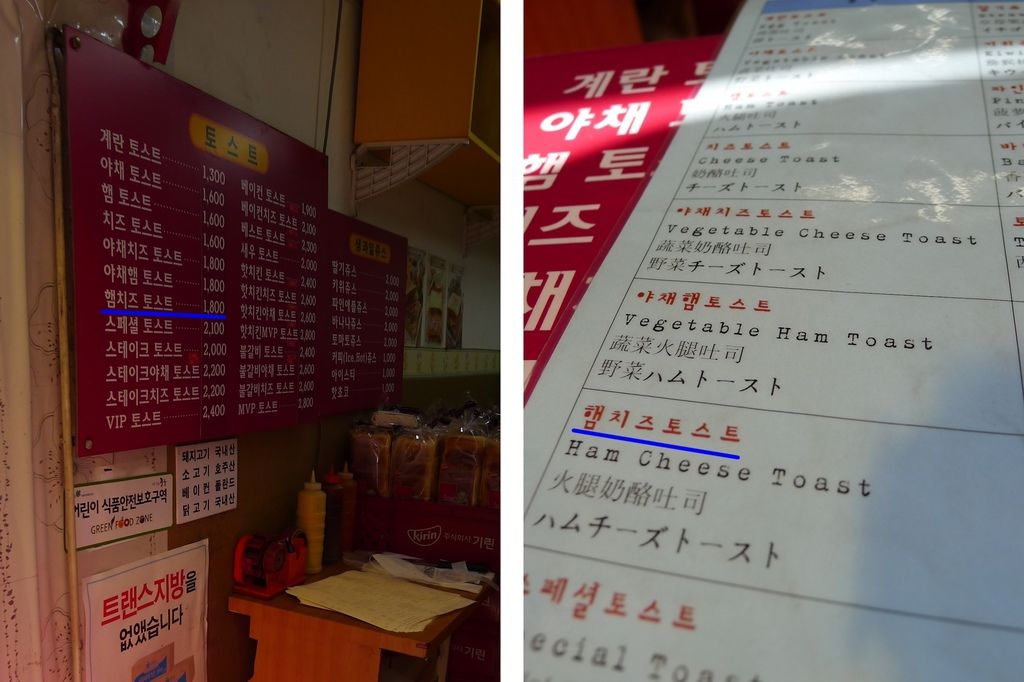 토스트
계란 토스트 1,300
야채 토스트 1,600
햄 토스트 1,600
치즈 토스트 1,600
야채치즈 토스트 1,800
야채햄 토스트 1,800
햄치즈 토스트 1,800
스페셜 토스트 2,100
스테이크 토스트 2,000
스테이크야채 토스트 2,200
스테이크치즈 토스트 2,200
VIP 토스트 2,400
베이컨 토스트 1,900
베이컨치즈 토스트 2,100
베스트 토스트 2,300
새우 토스트 2,100
핫치킨 토스트 2,400
핫치킨치즈 토스트 2,600
핫치킨야채 토스트 2,600
핫치킨MVP 토스트 2,800
불갈비 토스트 2,400
불갈비야채 토스트 2,600
불갈비치즈 토스트 2,600
MVP 토스트 2,800
생과일쥬스
딸기쥬스 2,000
키위쥬스 2,000
파인애플쥬스 2,000
바나나쥬스 2,000
토마토쥬스 2,000
커피(Ice.Hot)쥬스 1,000
아이스티 1,000
핫초코 1,000
돼지고기 국내산
소고기 호주산
베이컨 폴란드
닭고기 국내산
어린이 식품안전보호구역
GREEN FOOD ZONE
트랜스지방을
없앴습니다
kirin 주식회사 기린
기린
계란 토
야채
햄 토
치즈
야채
야채토스트
햄토스트
Ham Toast
火腿吐司
ハムトースト
치즈토스트
Cheese Toast
奶酪吐司
チーズトースト
야채치즈토스트
Vegetable Cheese Toast
蔬菜奶酪吐司
野菜チーズトースト
야채햄토스트
Vegetable Ham Toast
蔬菜火腿吐司
野菜ハムトースト
햄치즈토스트
Ham Cheese Toast
火腿奶酪吐司
ハムチーズトースト
스페셜토스트
ecial Toast